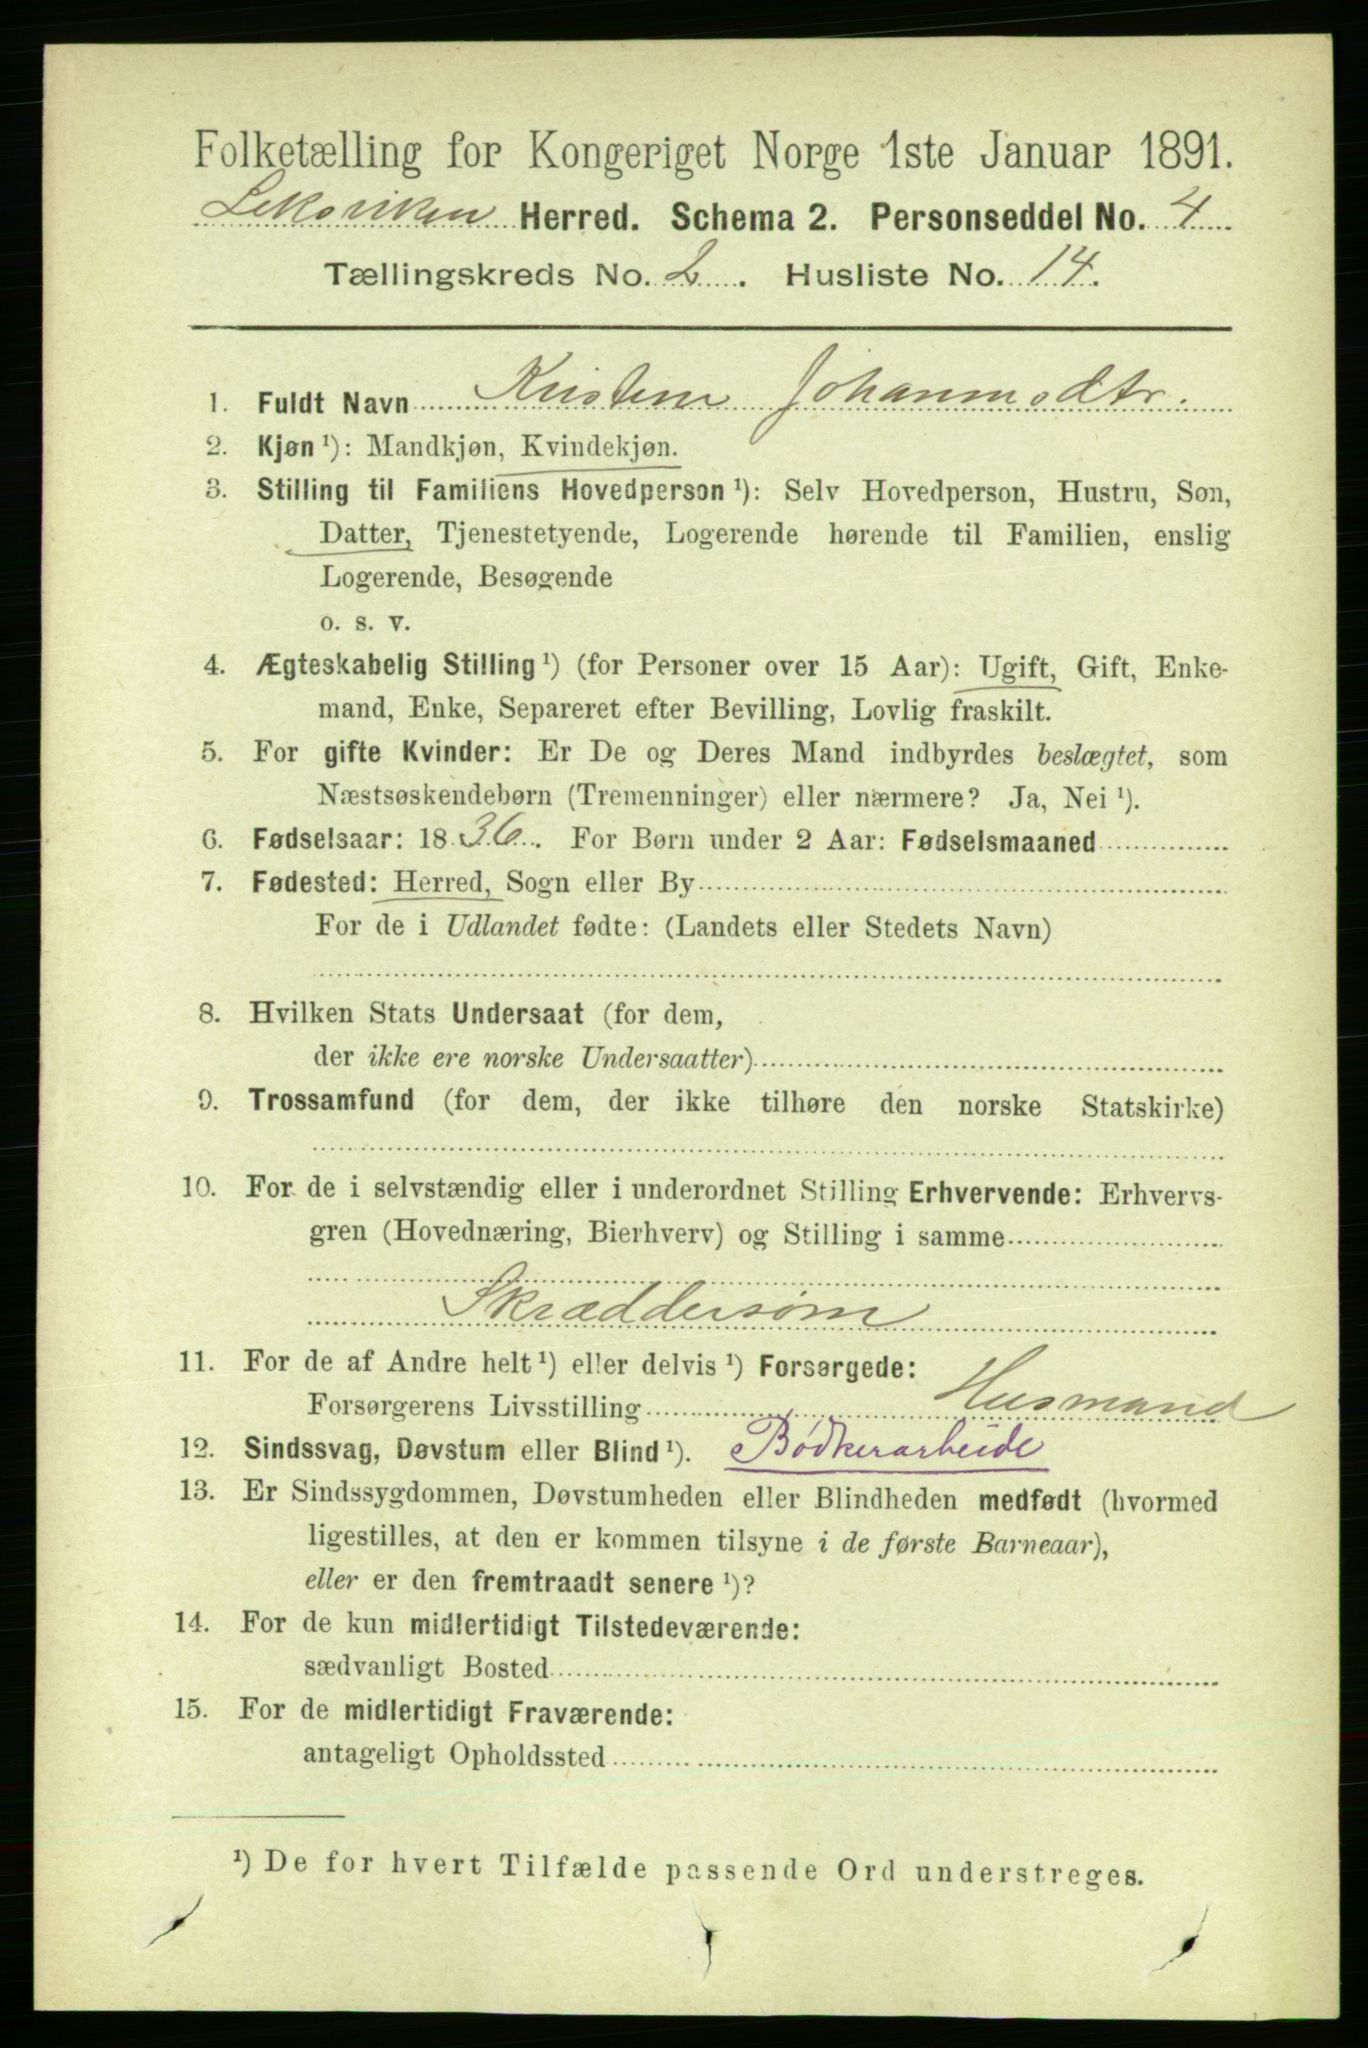 Folketælling for Kongeriget Norge 1ste Januar 1891.
Leksviken Herred. Schema 2. Personseddel No. 4
Tællingskreds No. 2. Husliste No. 14.
1. Fuldt Navn Johannesdtr.
2. Kjøn ¹): Mandkjøn, Kvindekjøn.
3. Stilling til Familiens Hovedperson ¹): Selv Hovedperson, Hustru, Søn,
Datter, Tjenestetyende, Logerende hørende til Familien, enslig
Logerende, Besøgende
o. s. v.
4. Ægteskabelig Stilling ¹) (for Personer over 15 Aar): Ugift, Gift, Enke-
mand, Enke, Separeret efter Bevilling, Lovlig fraskilt.
5. For gifte Kvinder: Er De og Deres Mand indbyrdes beslægtet, som
Næstsøskendebørn (Tremenninger) eller nærmere? Ja, Nei ¹).
6. Fødselsaar: 1836. For Børn under 2 Aar: Fødselsmaaned
7. Fødested: Herred, Sogn eller By
For de i Udlandet fødte: (Landets eller Stedets Navn)
8. Hvilken Stats Undersaat (for dem,
der ikke ere norske Undersaatter)
9. Trossamfund (for dem, der ikke tilhøre den norske Statskirke)
10. For de i selvstændig eller i underordnet Stilling Erhvervende: Erhvervs-
gren (Hovednæring, Bierhverv) og Stilling i samme
Skræddersøm
11. For de af Andre helt ¹) eller delvis ¹) Forsørgede:
Forsørgerens Livsstilling Husmand
12. Sindssvag, Døvstum eller Blind ¹). Bödkerarbeide
13. Er Sindssygdommen, Døvstumheden eller Blindheden medfødt (hvormed
ligestilles, at den er kommen tilsyne i de første Barneaar),
eller er den fremtraadt senere ¹)?
14. For de kun midlertidigt Tilstedeværende:
sædvanligt Bosted
15. For de midlertidigt Fraværende:
antageligt Opholdssted
¹) De for hvert Tilfælde passende Ord understreges.